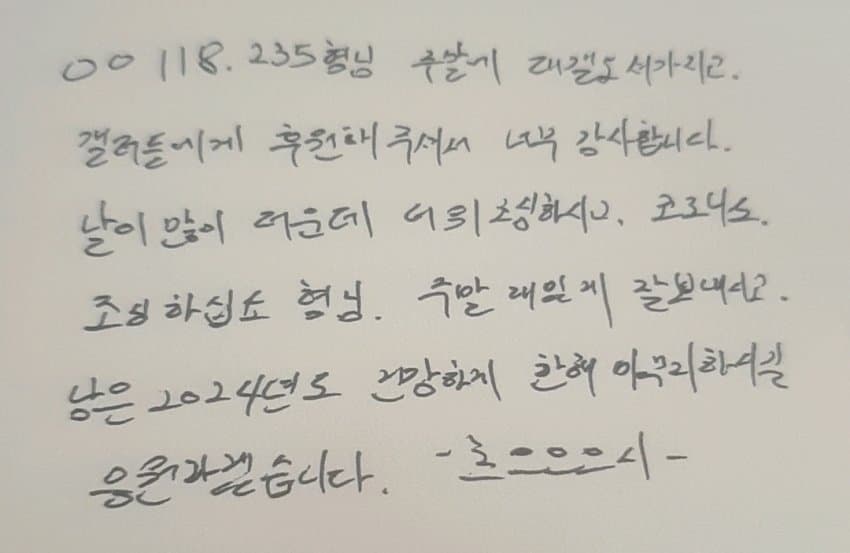 00 118.235형님 주말에 대결도 서가지고.
갤러들에게 후원해주셔서 너무 감사합니다.
날이 많이 더운데 더위조심하시고. 코로나도.
조심하십쇼 형님. 주말 재밌게 잘보내시고.
남은 2024년도 건강하게 한해 마무리하시길
응원하겠습니다.